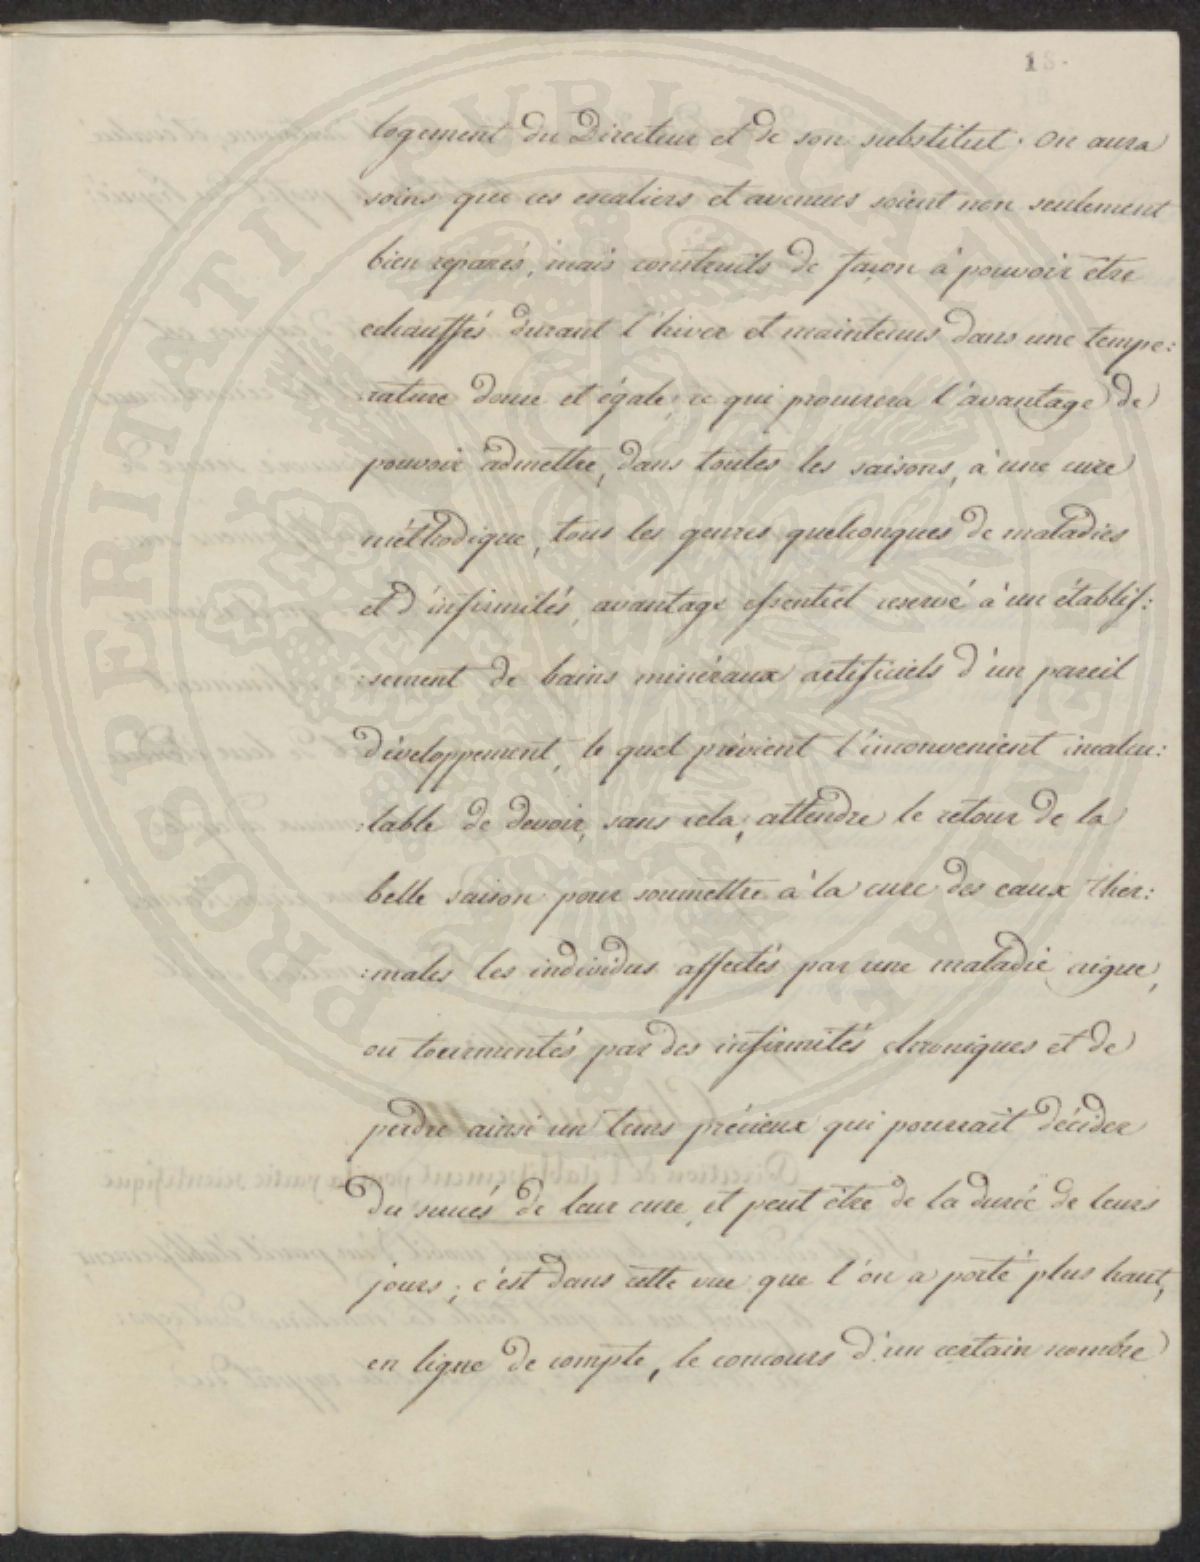 18.
logement du Directeur et de son substitut. On aura
soins que ces escaliers et avenues soient non seulement
bien reparés, mais construits de façon à pouvoir être
echauffés durant l'hiver et maintenus dans une tempe:
:rature douce et égale; ce qui procurera l'avantage de
pouvoir admettre, dans toutes les saisons, à une cure
méthodique, tous les genres quelconques de maladies
et d'infirmités, avantage essentiel reservé à un établis:
:sement de bains minéraux artificiels d'un pareil
développement, le quel prévient l'inconvenient incalcu:
:lable de devoir, sans cela, attendre le retour de la
belle saison pour soumettre à la cure des eaux ther:
:males les individus affectés par une maladie aigue,
ou tourmentés par des infirmités chroniques et de
perdre ainsi un tems précieux qui pourrait décider
du succés de leur cure, et peut être de la durée de leurs
jours; c'est dans cette vue que l'on a porté plus haut,
en ligne de compte, le concours d'un certain nombre
PROSPERITATI PUBLICAE AUGENDAE